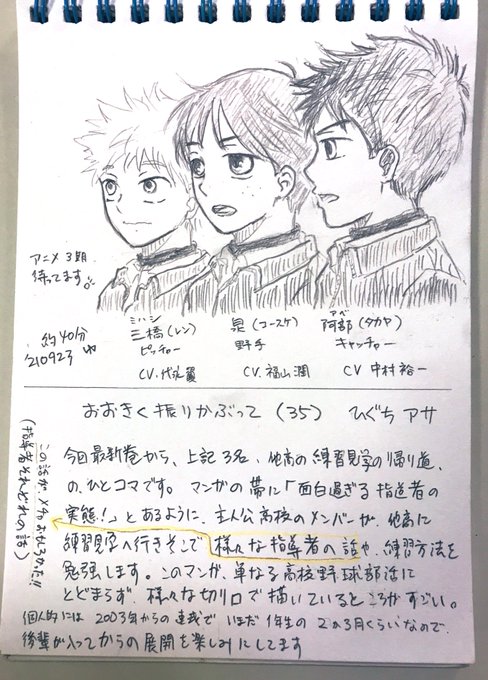 アニメ3期
待ってます。
約40分
210923
ミハシ
三橋(レン)
ピッチャー
CV.代永翼
泉(コースケ)
野手
CV.福山潤
アベ
阿部(タカヤ)
キャッチャー
CV 中村裕一
おおきく振りかぶって (35) ひぐちアサ
今回最新巻から、上記3名、他高の練習見学の帰り道、
の、ひとコマです。マンガの帯に「面白過ぎる指導者の
実態!」とあるように、主人公高校のメンバーが、他高に
練習見学へ行きそこで様々な指導者の話や、練習方法を
勉強します。このマンガ、単なる高校野球部活に
とどまらず、様々な切り口で描いているところがすごい。
個人的には2003年からの連載で、いまだ1年生の2か3月くらいなので、
後輩が入ってからの展開を楽しみにしてます
この話が、メチャおもしろかった!!
(指導者それぞれの話)